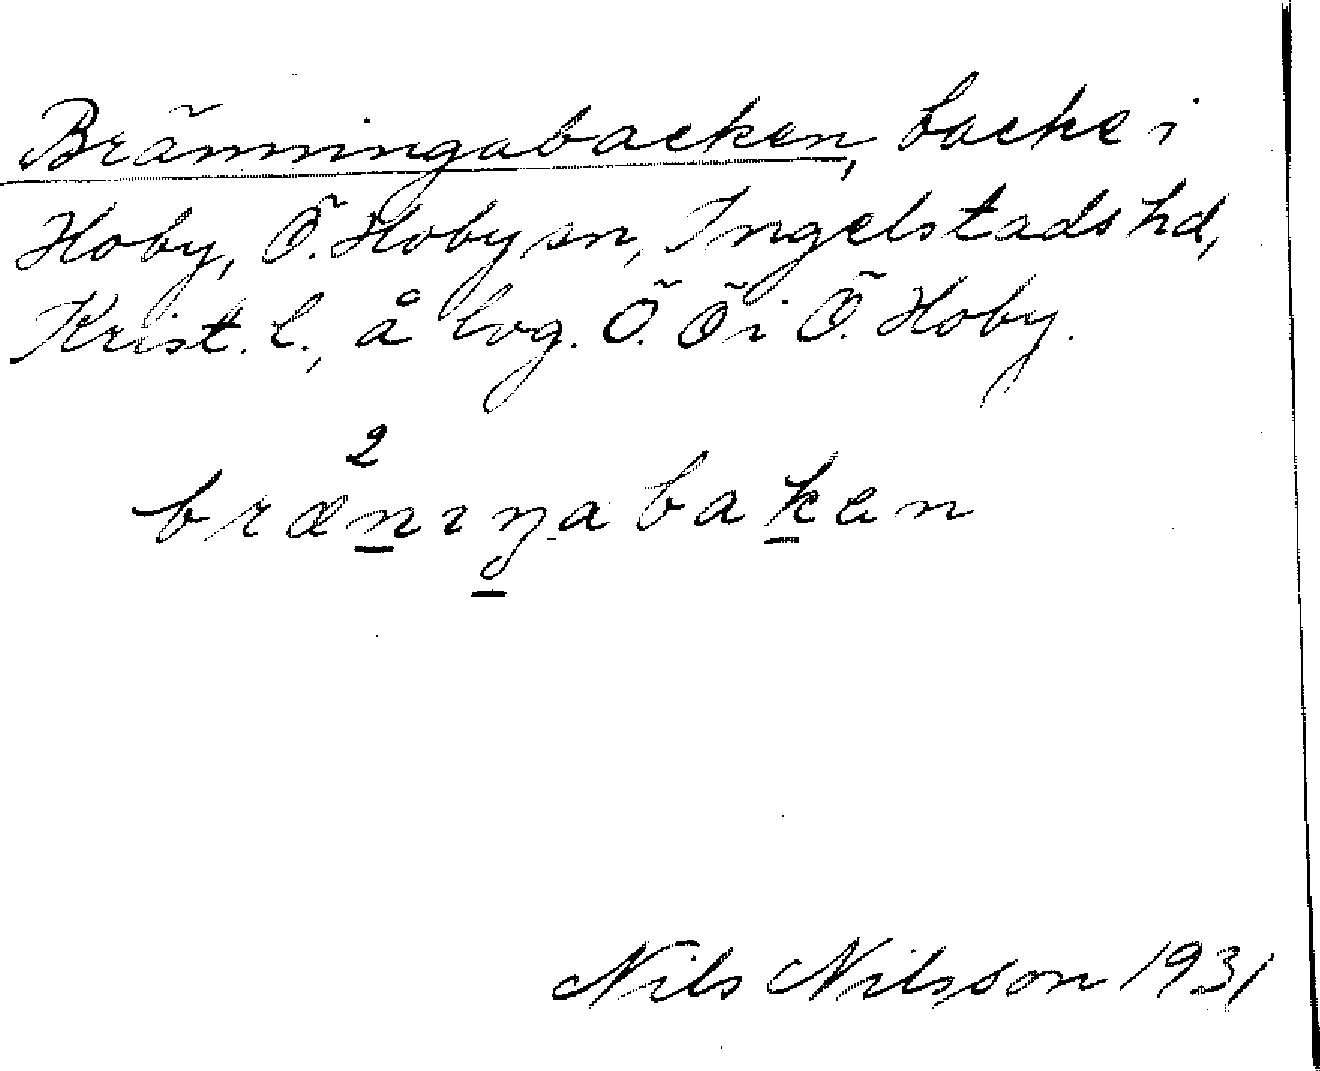 Bränningabacken, backe i
Hoby, Ö. Hoby sn, Ingelstads hd,
Krist. l., å log. Ö. Ö i Ö. Hoby.
2
brænıŋabaken
Nils Nilsson 1931